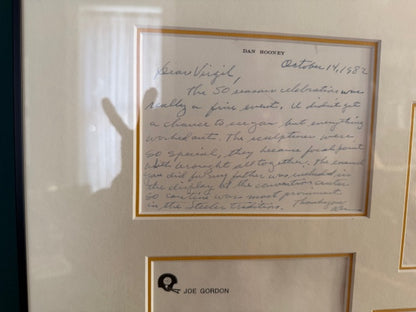 DAN ROONEY
October 14, 1982
Dear Virgil,
The 50 seasons celebration was
really a fine event. I didn't get
a chance to see you but everything
worked out. The sculptures were
so special, they became focal point
brought all together. The
you did for my father was included in
the display at the convention center
so was most prominent
in the Steeler tradition. Thank you
JOE GORDON